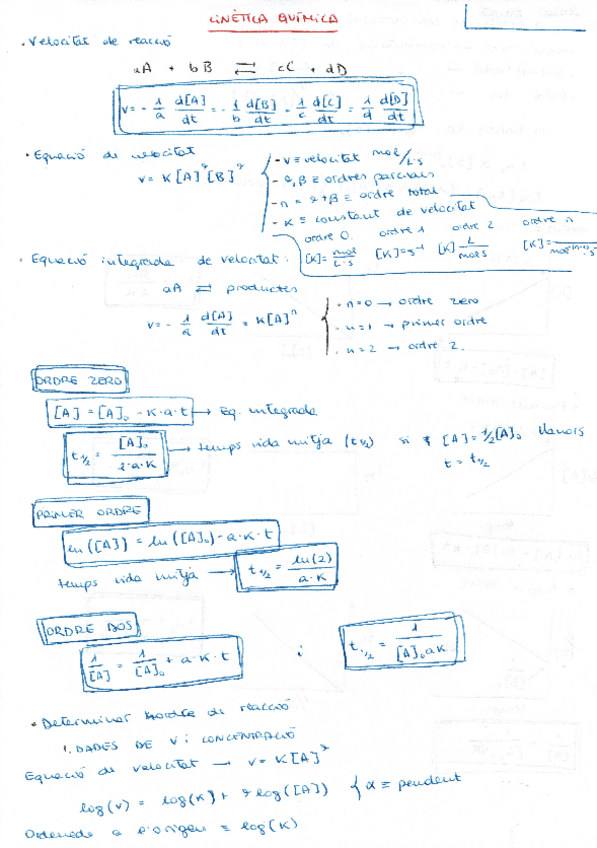 CINÈTICA QUÍMICA
• Velocitat de reacció
aA + bB ⇄ cC + dD
v = - 1/a d[A]/dt = - 1/b d[B]/dt = 1/c d[C]/dt = 1/d d[D]/dt
• Equació de velocitat
v = K[A]^α [B]^β
- v ≡ velocitat mol/L·s
- α, β ≡ ordres parcials
- n = α+β ≡ ordre total
- K ≡ constant de velocitat
ordre 0 ordre 1 ordre 2 ordre n
[K] = mol/L·s [K] = s⁻¹ [K] L/mol·s [K] =
• Equació integrada de velocitat:
aA ⇄ productes
v = - 1/a d[A]/dt = K[A]^n
• n=0 → ordre zero
• n=1 → primer ordre
• n=2 → ordre 2.
ORDRE ZERO
[A] = [A]₀ - K·a·t → Eq. integrada
t₁/₂ = [A]₀ / 2·a·K → temps vida mitja (t₁/₂) si [A] = 1/2[A]₀ llavors
t = t₁/₂
PRIMER ORDRE
ln([A]) = ln([A]₀) - a·K·t
temps vida mitjà → t₁/₂ = ln(2) / a·K
ORDRE DOS
1/[A] = 1/[A]₀ + a·K·t i t₁/₂ = 1 / [A]₀aK
• Determinar l'ordre de reacció
1. DADES DE V i CONCENTRACIÓ
Equació de velocitat → v = K[A]^α
log(v) = log(K) + α log([A]) { α ≡ pendent
Ordenada a l'origen ≡ log(K)